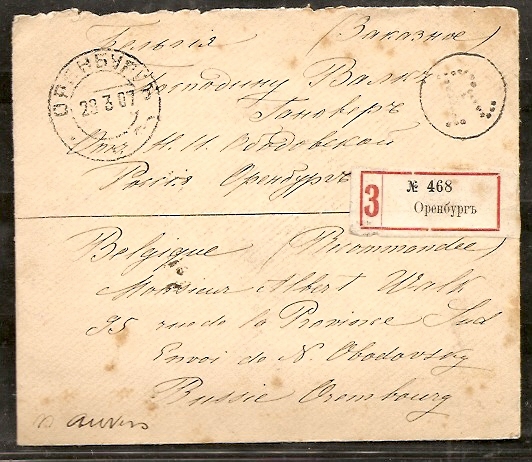 Бельгія (Заказное)
ОРЕНБУРГЪ
29 3 07
Господину Валкъ
Н. Н. Ободовской
Россія Оренбургъ
З
№ 468
Оренбургъ
Belgique (Recommandée)
Monsieur Albert Walk
95 rue de la Province Sud
Envoi de N. Obodovsky
Russie Orembourg
a anvers